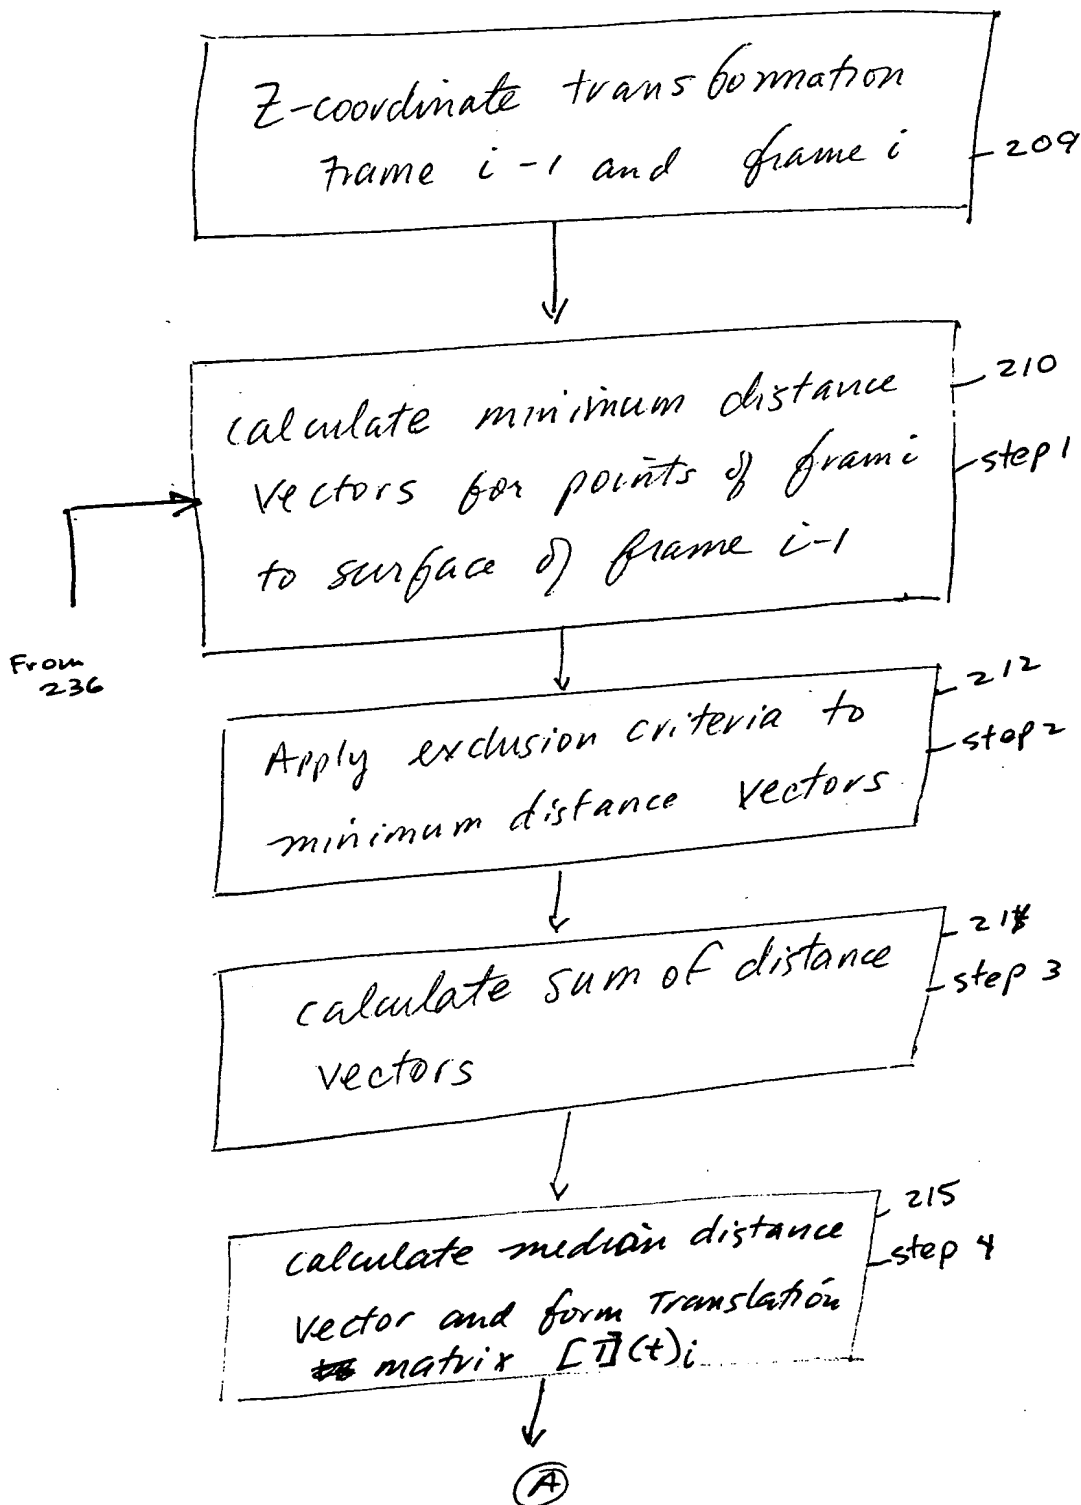 Z-coordinate transformation
frame i-1 and frame i
209
calculate minimum distance
vectors for points of frami
to surface of frame i-1
210
step 1
From
236
Apply exclusion criteria to
minimum distance vectors
212
step 2
calculate sum of distance
vectors
214
step 3
calculate median distance
vector and form Translation
matrix [T](t)i
215
step 4
A